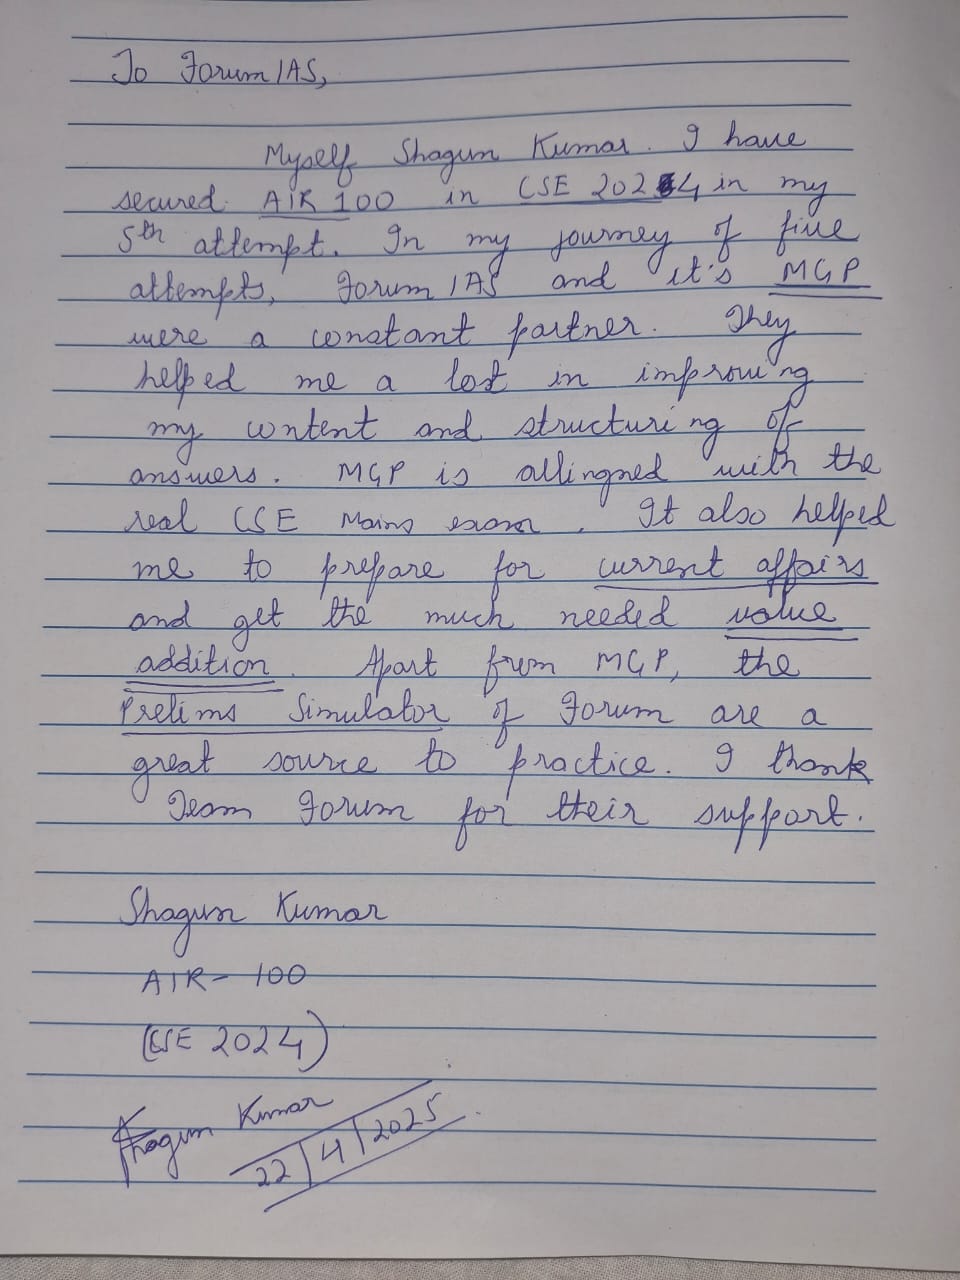 To Forum IAS,
Myself Shagun Kumar. I have
secured AIR 100 in CSE 2024 in my
5th attempt. In my journey of five
attempts, Forum IAS and it's MGP
were a constant partner. They
helped me a lost in improving
my content and structuring of
answers. MGP is allingned with the
real CSE Mains exam. It also helped
me to prepare for current affairs
and get the much needed value
addition. Apart from MGP, the
Prelims Simulator of Forum are a
great source to practice. I thank
Team Forum for their support.
Shagun Kumar
AIR- 100
(CSE 2024)
Shagun Kumar
22/4/2025